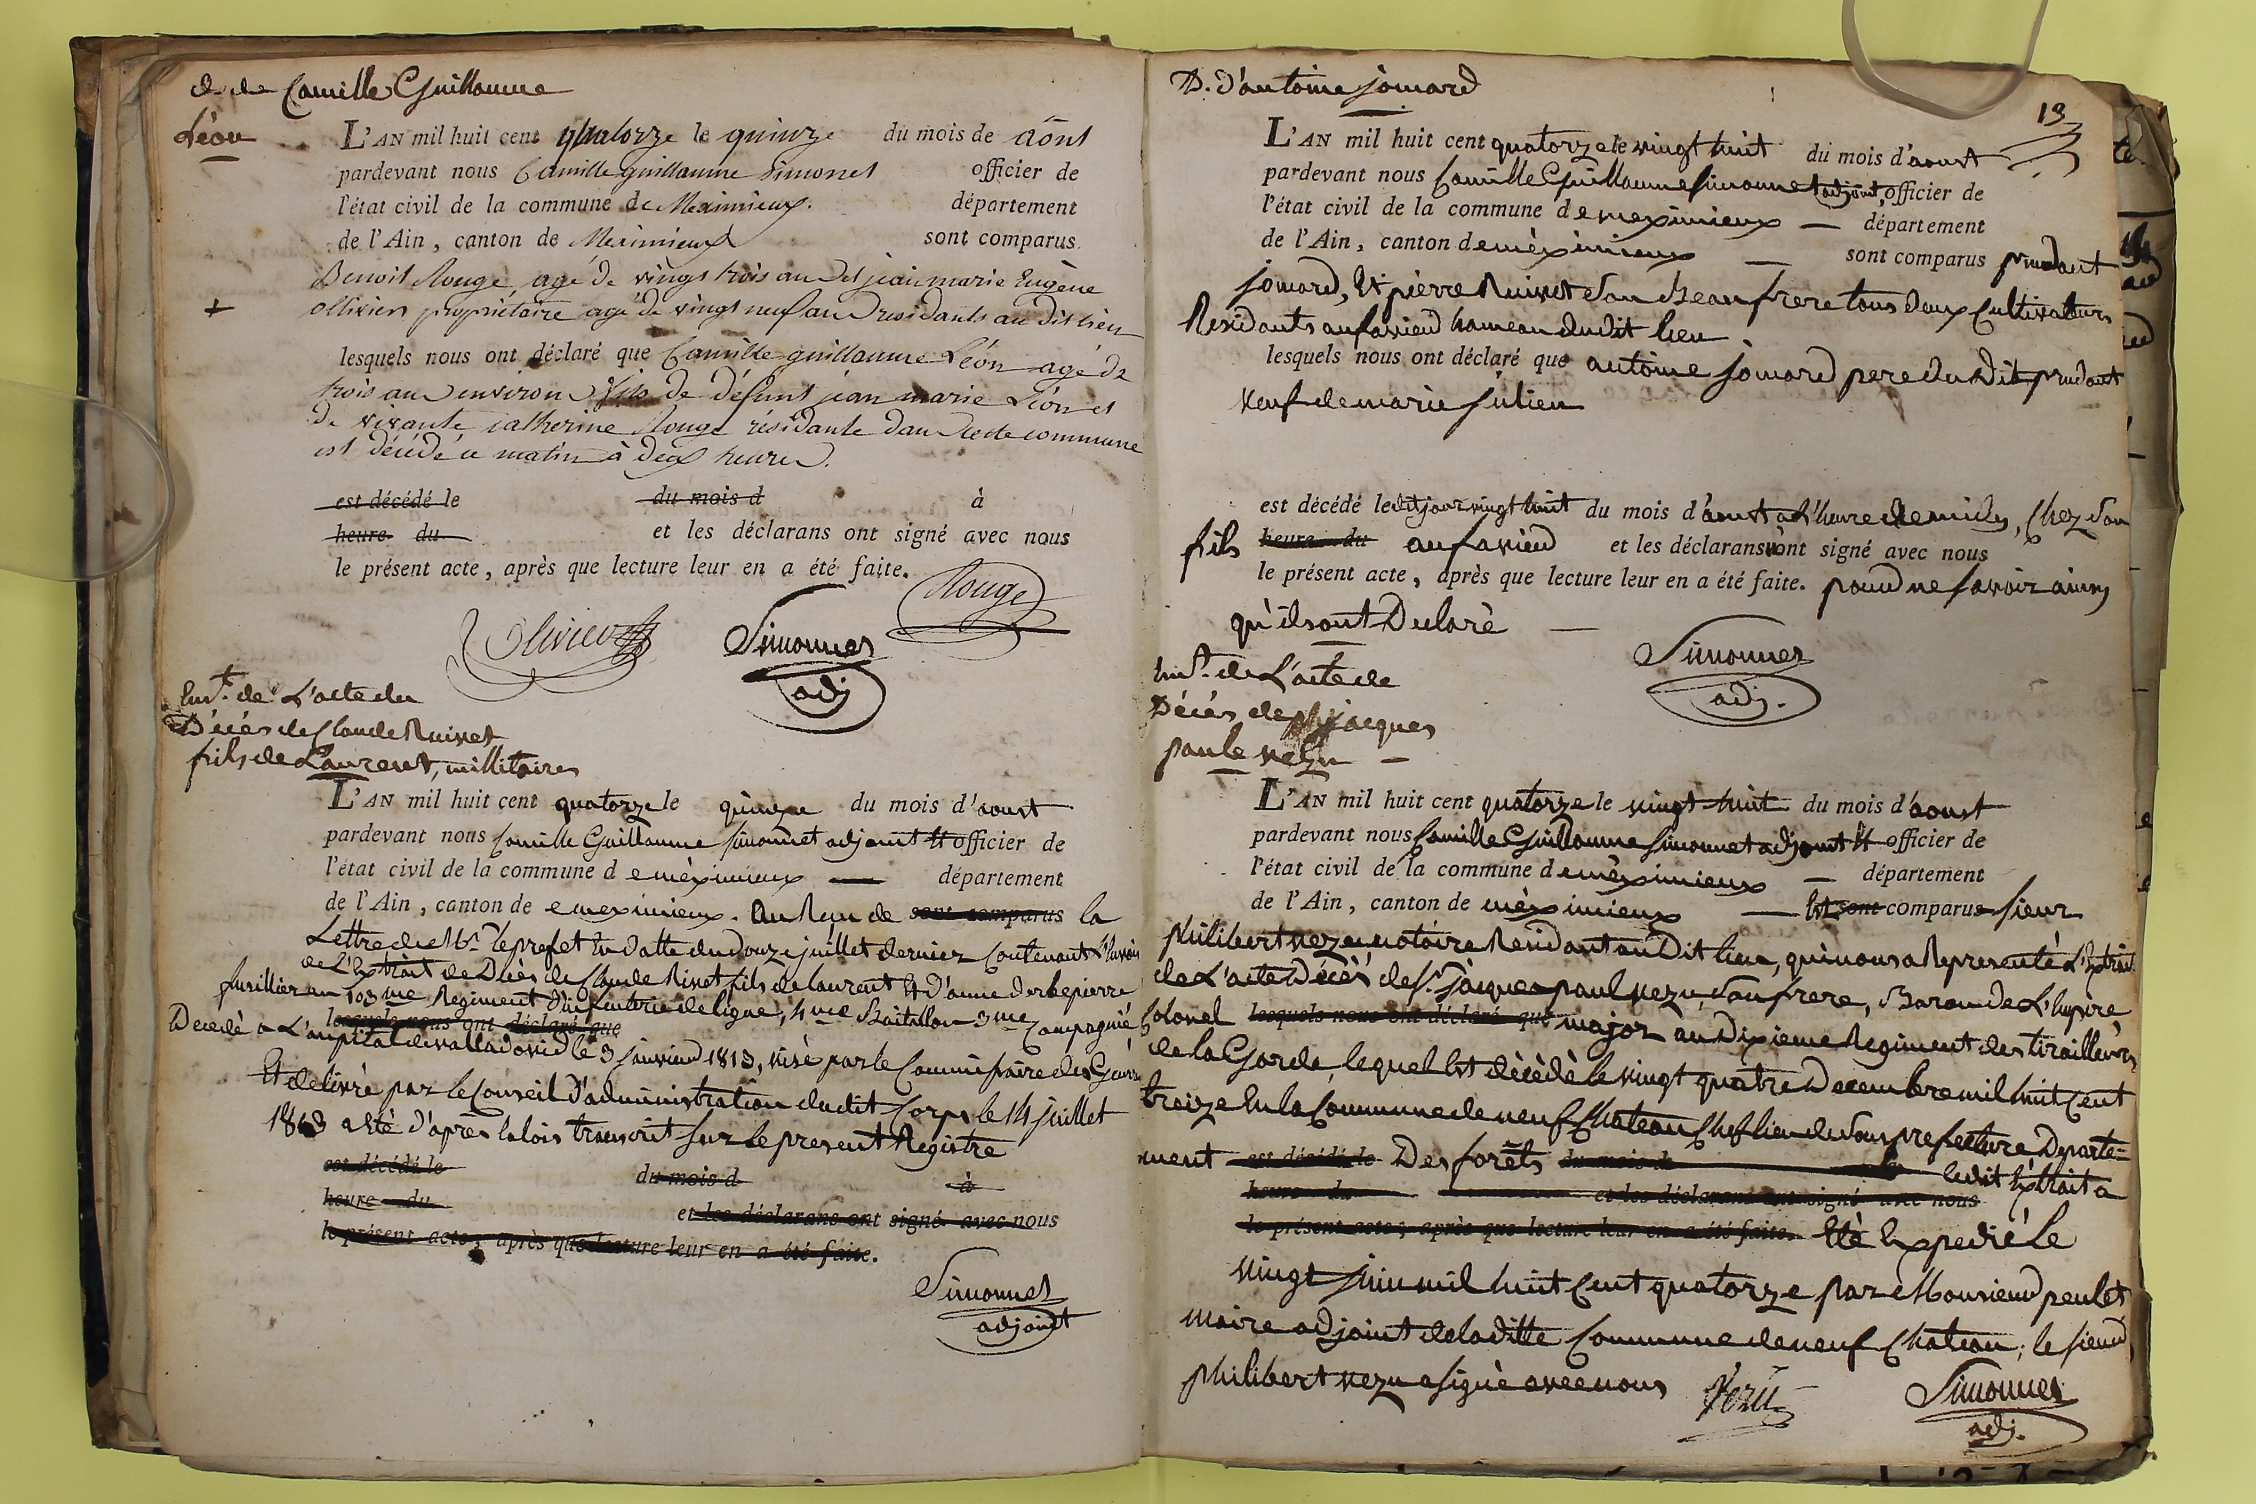 d. de Camille Guillaume
Léon
L'AN mil huit cent quatorze le quinze du mois de août
pardevant nous Camille guillaume Simonet officier de
l'état civil de la commune de Meximieux. département
de l'Ain, canton de Meximieux sont comparus
Benoit Rouge, agé de vingt trois ans et jean marie Eugène
Ollivier propriétaire agé de vingt neuf ans residants au dit lieu
+
lesquels nous ont déclaré que Camille guillaume Léon agé de
trois ans environ fils de défunt jean marie Léon et
de vivante catherine Rouge résidante dans cette commune
est décédé ce matin à deux heures.
est décédé le du mois d à
heure du et les déclarans ont signé avec nous
le présent acte, après que lecture leur en a été faite.
Rouge
Olivier
Simonnet
adj
Enrt. de L'acte du
Décés de Claude Ruivet
fils de Laurent, millitaires
L'AN mil huit cent quatorze le quinze du mois d'aoust
pardevant nous Camille Guillaume Simonnet adjoint Et officier de
l'état civil de la commune d emèximieux — département
de l'Ain, canton de emeximieux. au Reçu de sont comparus la
Lettre de Mr. le prefet En datte du douze juillet dernier Contenant L'envoi
de L'Extrait de Décès de Claude Rivet fils de laurent Et D'anne Derbepierre
fusillier au 103me Regiment D'infanterie de ligne, 4me Baitallon 3me Compagnié
lesquels nous ont déclaré que
Decedé a L'aupital de valladovid le 3 Jinvied 1813, visè par le Commissaire des Guerres
Et delivrè par le Conseil D'administration dudit Corps le 14 juillet
1813 a etè d'après la lois transcrit sur le present Registre
est décédé le du mois d à
heure du et les déclarans ont signé avec nous
le présent acte, après que lecture leur en a été faite.
Simonnet
adjoint
D. d'antoine jomard
19
L'AN mil huit cent quatorze le vingt huit du mois d'aoust
pardevant nous Camille Guillaume Simonnet adjoint, officier de
l'état civil de la commune d emeximieux — département
de l'Ain, canton demèximieux — sont comparus prudant
jomard, Et pierre Ruivet son Beaufrere tous deux Cultivateurs
Residants au favied hameau dudit lieu
lesquels nous ont déclaré que antoine jomard pere dudit prudant
veuf de marie julien
est décédé le dit jour vingt huit du mois d'aoust a L'heure de midy, Chez son
fils heure du au favied et les déclarans n'ont signé avec nous
le présent acte, après que lecture leur en a été faite. pour ne savoir ainsy
qu'ilsont Declarè —
Simonnet
adj.
Enrt. de L'acte de
Décès de jacques
paul vezu —
L'AN mil huit cent quatorze le vingt huit du mois d'aoust
pardevant nous Camille Guillaume Simonnet adjoint Et officier de
l'état civil de la commune d emèximieux — département
de l'Ain, canton de mèximieux — Est sont comparus sieur
philibert vezu notaire Residant audit lieu, qui nous a Representé L'Extrait
de L'acte Décès de Sr. jâcques paul vezu, son frere, Baron de L'Empire
Colonel lesquels nous ont déclaré que major au Dixieme Regiment des tirailleurs
de la Garde, lequel Est dècèdè le vingt quatre Decembre mil huit Cent
treize En la Commune de neuf Chateau Chef lieu de Sous prefecture Departe=
ment est décédé le Des forêts du mois d ledit Extrait a
heure du et les déclarans ont signé avec nous
le présent acte, après que lecture leur en a été faite. Etè Expedié le
vingt juin mil huit Cent quatorze par Monsieur peulet
maire adjoint de laditte Commune de neuf Chateau; le sieur
philibert vezu a signè avec nous
Vezu
Simonnet
adj.